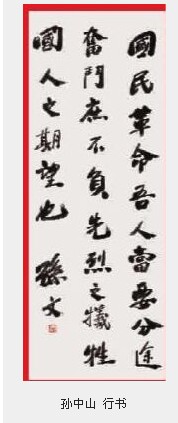 國民革命吾人當分途
奮鬥庶不負先烈之犧牲
國人之期望也 孫文
孙中山 行书